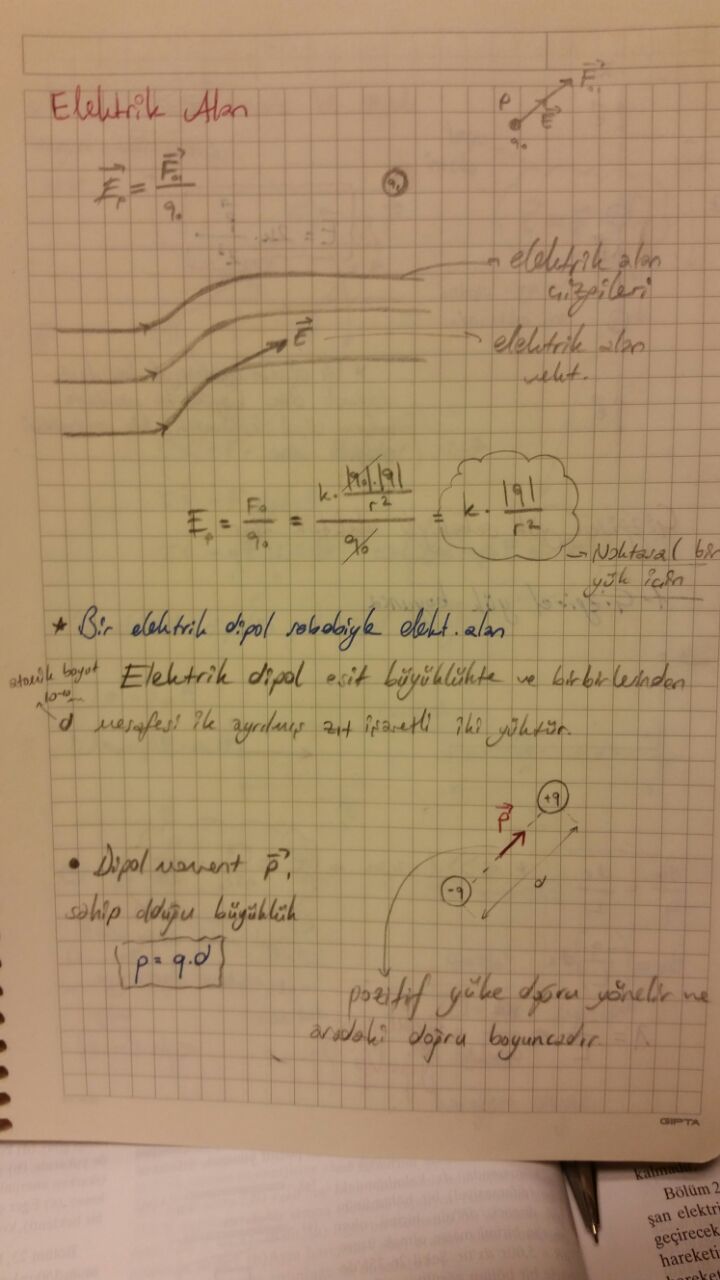 Elektrik Alan
P
F₀₁
E
q₀
E_p = F₀₁ / q₀
q₁
elektrik alan
çizgileri
E
elektrik alan
vekt.
E_p = F₀ / q₀ = k · |q₀|·|q| / r² / q₀ = k · |q| / r²
Noktasal bir
yük için
* Bir elektrik dipol sebebiyle elekt. alan
atomik boyut
Elektrik dipol eşit büyüklükte ve birbirlerinden
d mesafesi ile ayrılmış zıt işaretli iki yüktür.
+q
P
-q
d
• Dipol moment p,
sahip olduğu büyüklük
p = q.d
pozitif yüke doğru yönelir ve
aradaki doğru boyuncadır.
GIPTA
Bölüm 2
şan elektri
geçirecek
hareketi